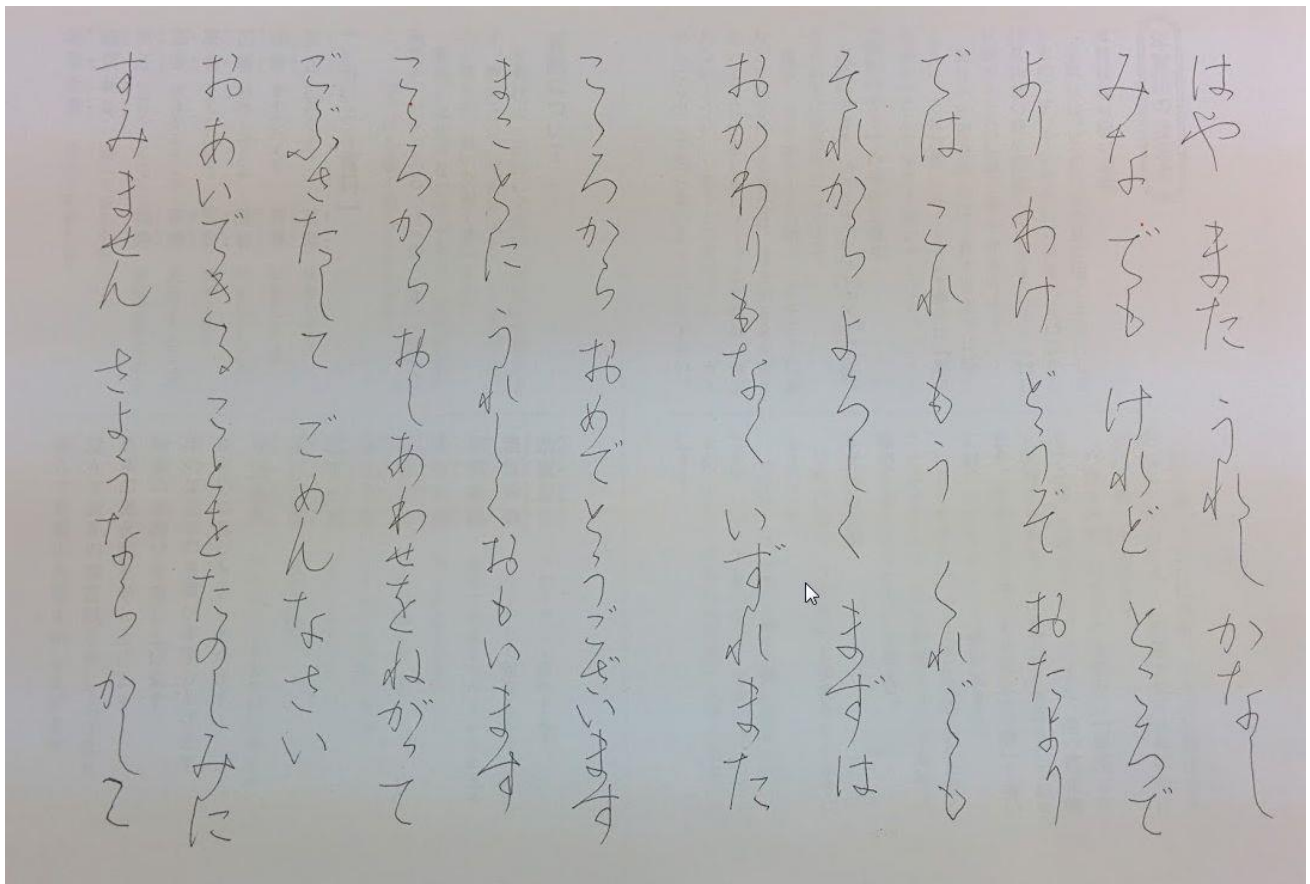 はや また うれし かなし
みな でも けれど ところで
より わけ どうぞ おたより
では これ もう くれぐれも
それから よろしく まずは
おかわりもなく いずれまた
こころから おめでとうございます
まことに うれしくおもいます
こころから おしあわせをねがって
ごぶさたして ごめんなさい
おあいできることをたのしみに
すみません さようなら かしこ